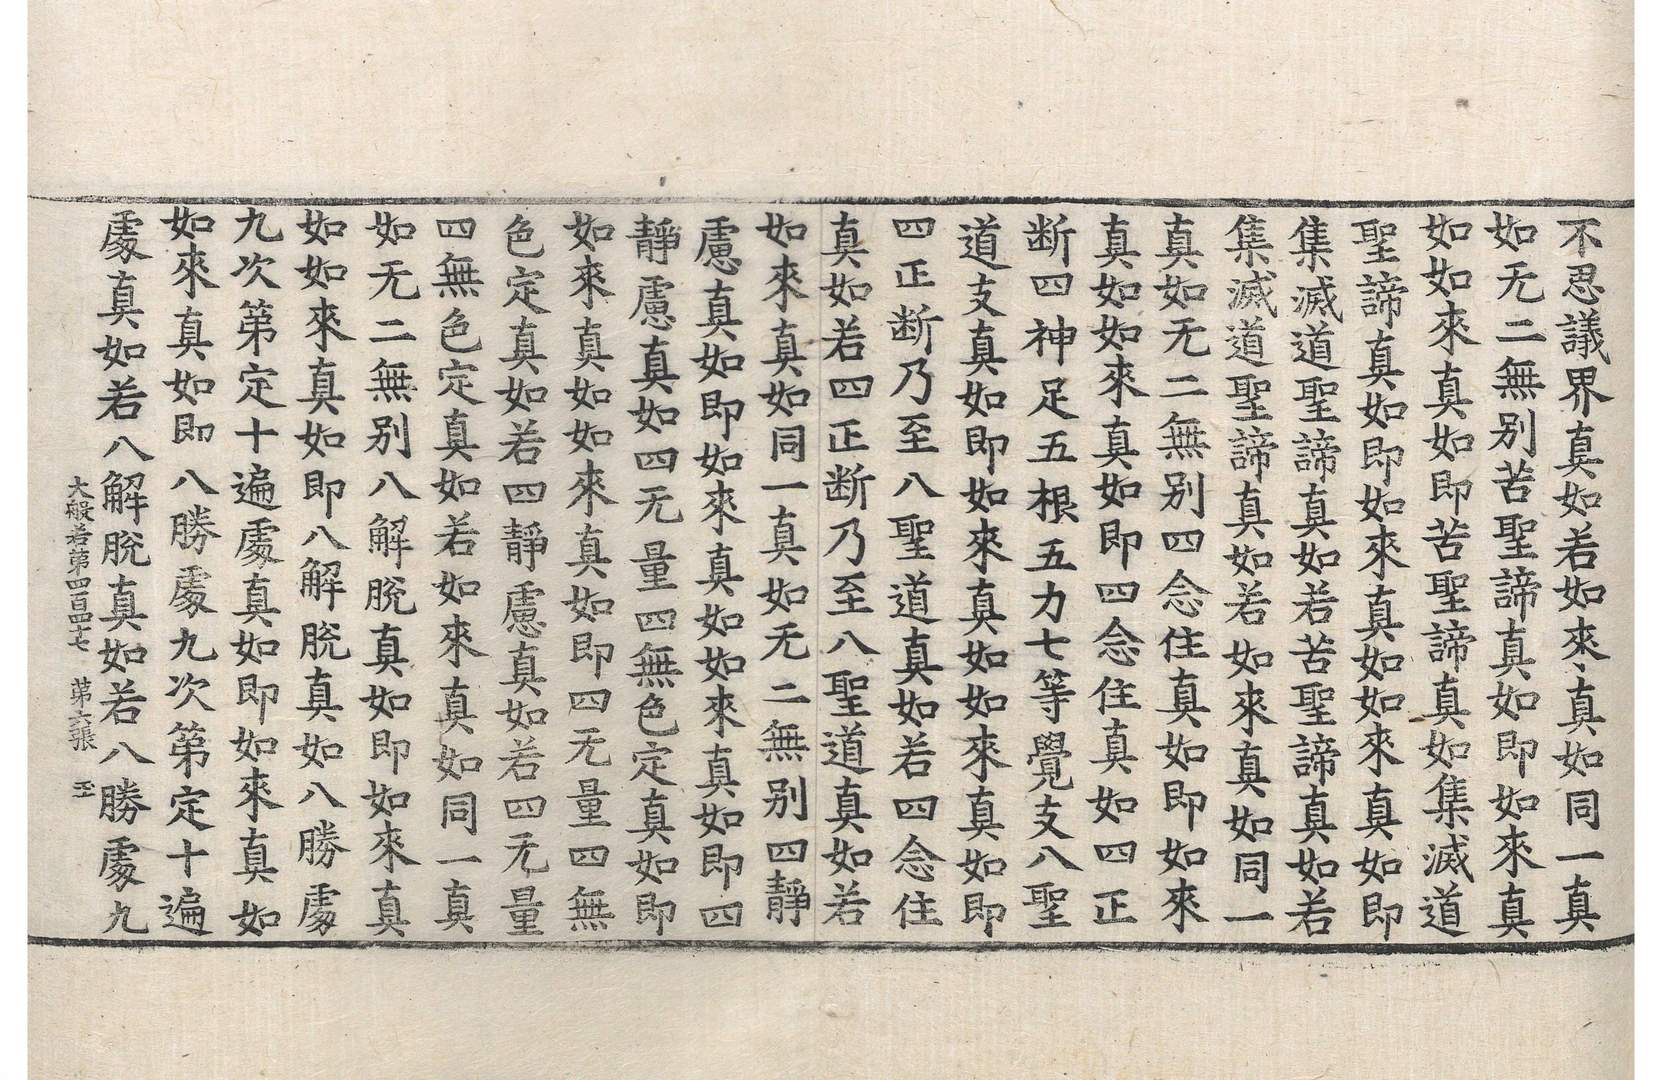 不思議界真如若如來真如同一真
如无二無別苦聖諦真如即如來真
如如來真如即苦聖諦真如集滅道
聖諦真如即如來真如如來真如即
集滅道聖諦真如若苦聖諦真如若
集滅道聖諦真如若如來真如同一
真如无二無別四念住真如即如來
真如如來真如即四念住真如四正
断四神足五根五力七等覺支八聖
道支真如即如來真如如來真如即
四正断乃至八聖道真如若四念住
真如若四正断乃至八聖道真如若
如來真如同一真如无二無別四靜
慮真如即如來真如如來真如即四
靜慮真如四无量四無色定真如即
如來真如如來真如即四无量四無
色定真如若四靜慮真如若四无量
四無色定真如若如來真如同一真
如无二無別八解脫真如即如來真
如如來真如即八解脫真如八勝處
九次第定十遍處真如即如來真如
如來真如即八勝處九次第定十遍
處真如若八解脫真如若八勝處九
大般若第四百四十七 第六張 玉